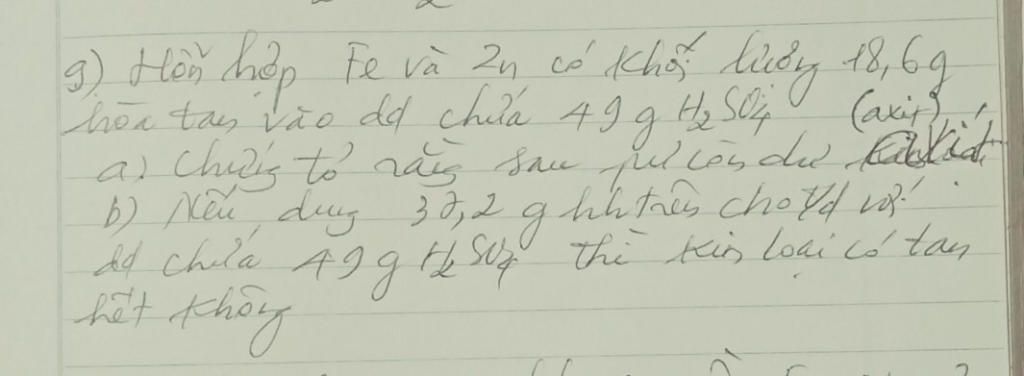 g) Hỗn hợp Fe và Zn có khối lượng 18,6g
hòa tan vào dd chứa 49g H₂SO₄ (axit)
a) Chứng tỏ rằng sau pư còn dư axit
b) Nếu dùng 37,2 g hh trên cho t/d với
dd chứa 49g H₂SO₄ thì kim loại có tan
hết không